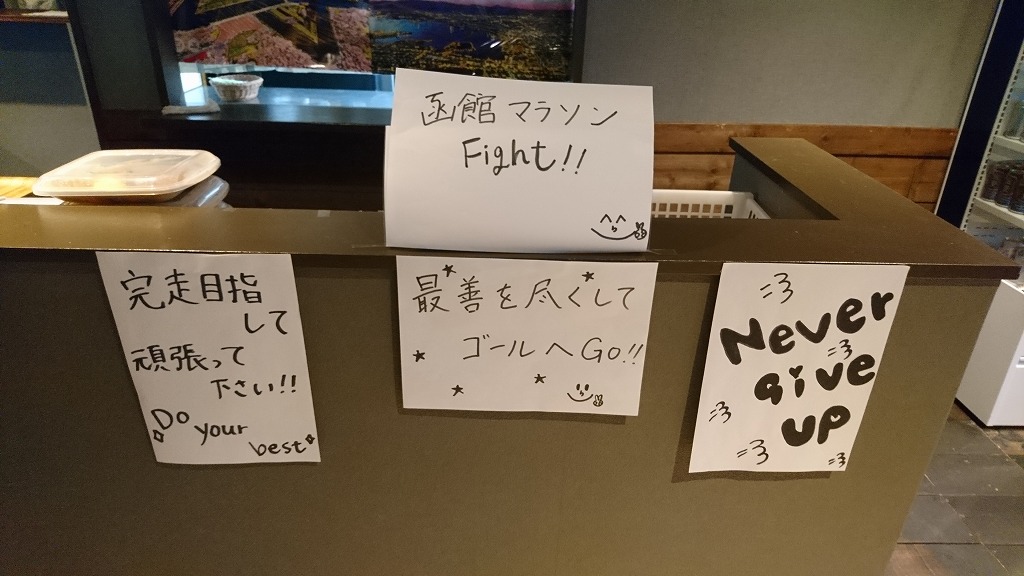 函館マラソン
Fight!!
完走目指
して
頑張って
下さい!!
Do your
best
最善を尽くして
ゴールへGo!!
Never
give
up